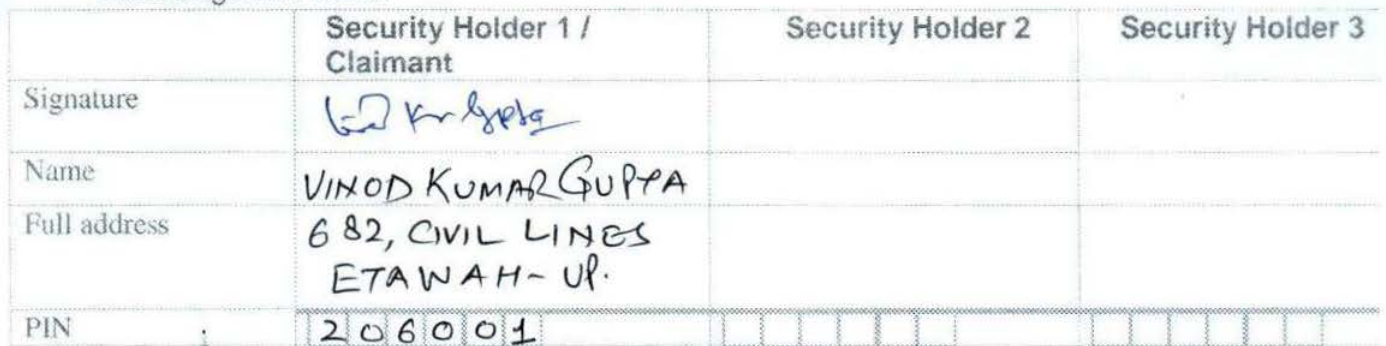 Security Holder 1 /
Claimant
Security Holder 2
Security Holder 3
Signature
Kr Gupta
Name
VINOD KUMAR GUPTA
Full address
682, CIVIL LINES
ETAWAH - UP.
PIN
206001